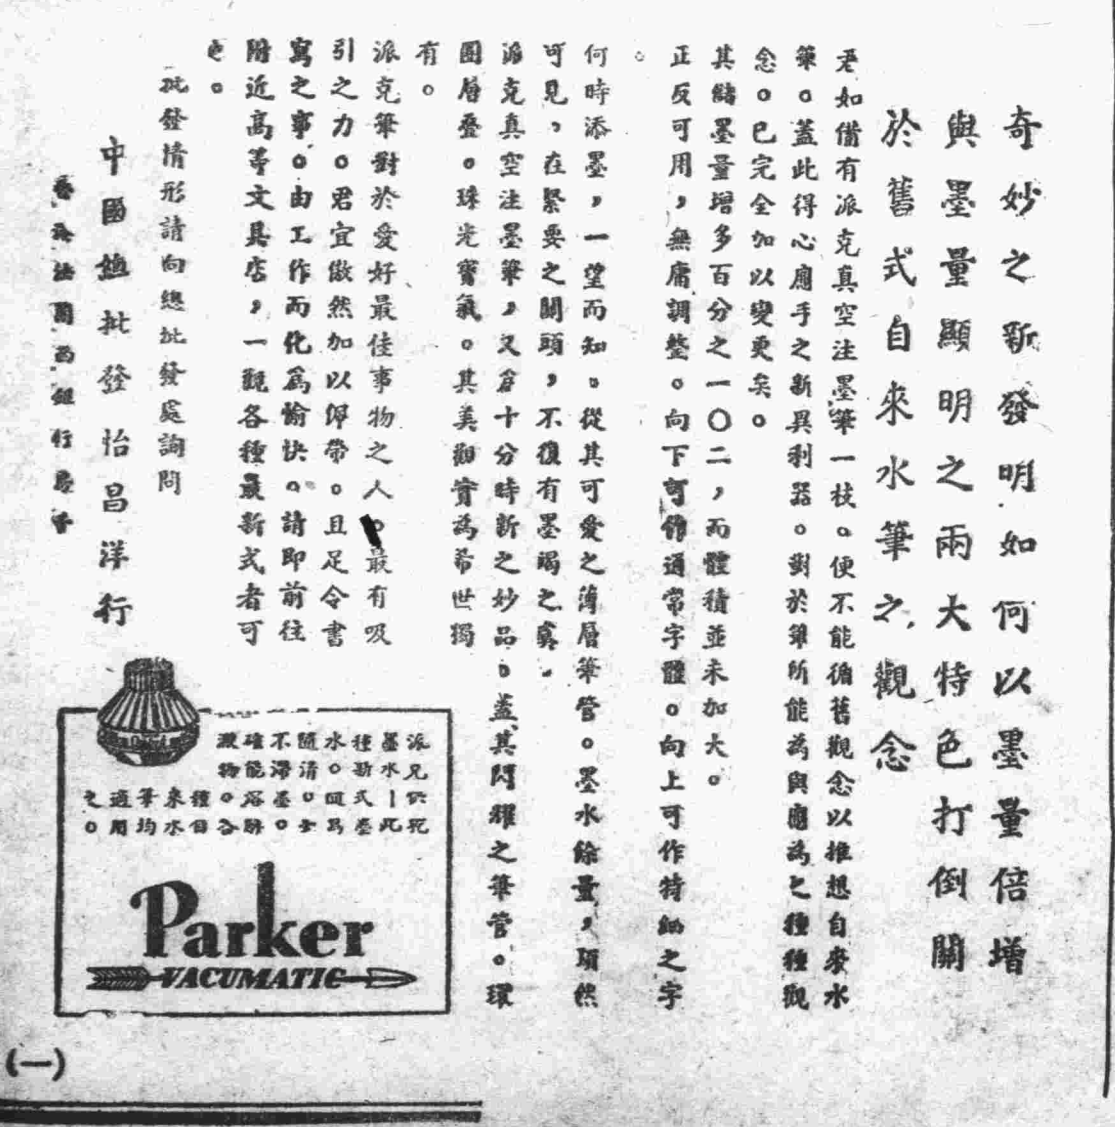 奇妙之新發明如何以墨量倍增
與墨量顯明之兩大特色打倒關
於舊式自來水筆之觀念
君如備有派克真空注墨筆一枝。便不能循舊觀念以推想自來水
筆。蓋此得心應手之新異利器。對於筆所能為與應為之種種觀
念。已完全加以變更矣。
其儲墨量增多百分之一〇二,而體積並未加大。
正反可用,無庸調整。向下可作通常字體。向上可作特細之字
。
何時添墨,一望而知。從其可愛之薄層筆管。墨水餘量,頃然
可見,在緊要之關頭,不復有墨竭之虞.
派克真空注墨筆,又為十分時新之妙品。蓋其閃耀之筆管。環
圍層疊。珠光寶氣。其美觀實為希世獨
有。
派克筆對於愛好最佳事物之人。最有吸
引之力。君宜傲然加以佩帶。且足令書
寫之事。由工作而化為愉快。請即前往
附近高等文具店,一觀各種最新式者可
也。
批發情形請向總批發處詢問
中國總批發怡昌洋行
法蘭西銀行
墨水—此
種新式墨
水。
隨清。
不滯墨。
確能溶解
澱物。各
種自
來水
筆均
適用
之。
Parker
VACUMATIC
(一)